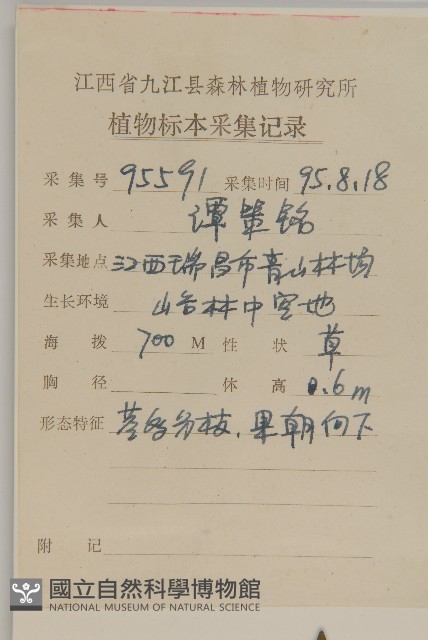 江西省九江县森林植物研究所
植物标本采集记录
采集号 95591 采集时间 95.8.18
采集人 谭策铭
采集地点 江西瑞昌市青山林场
生长环境 山谷林中空地
海拨 700 M 性状 草
胸径 体高 0.6m
形态特征 茎多分枝.果朝向下
附记
國立自然科學博物館
NATIONAL MUSEUM OF NATURAL SCIENCE